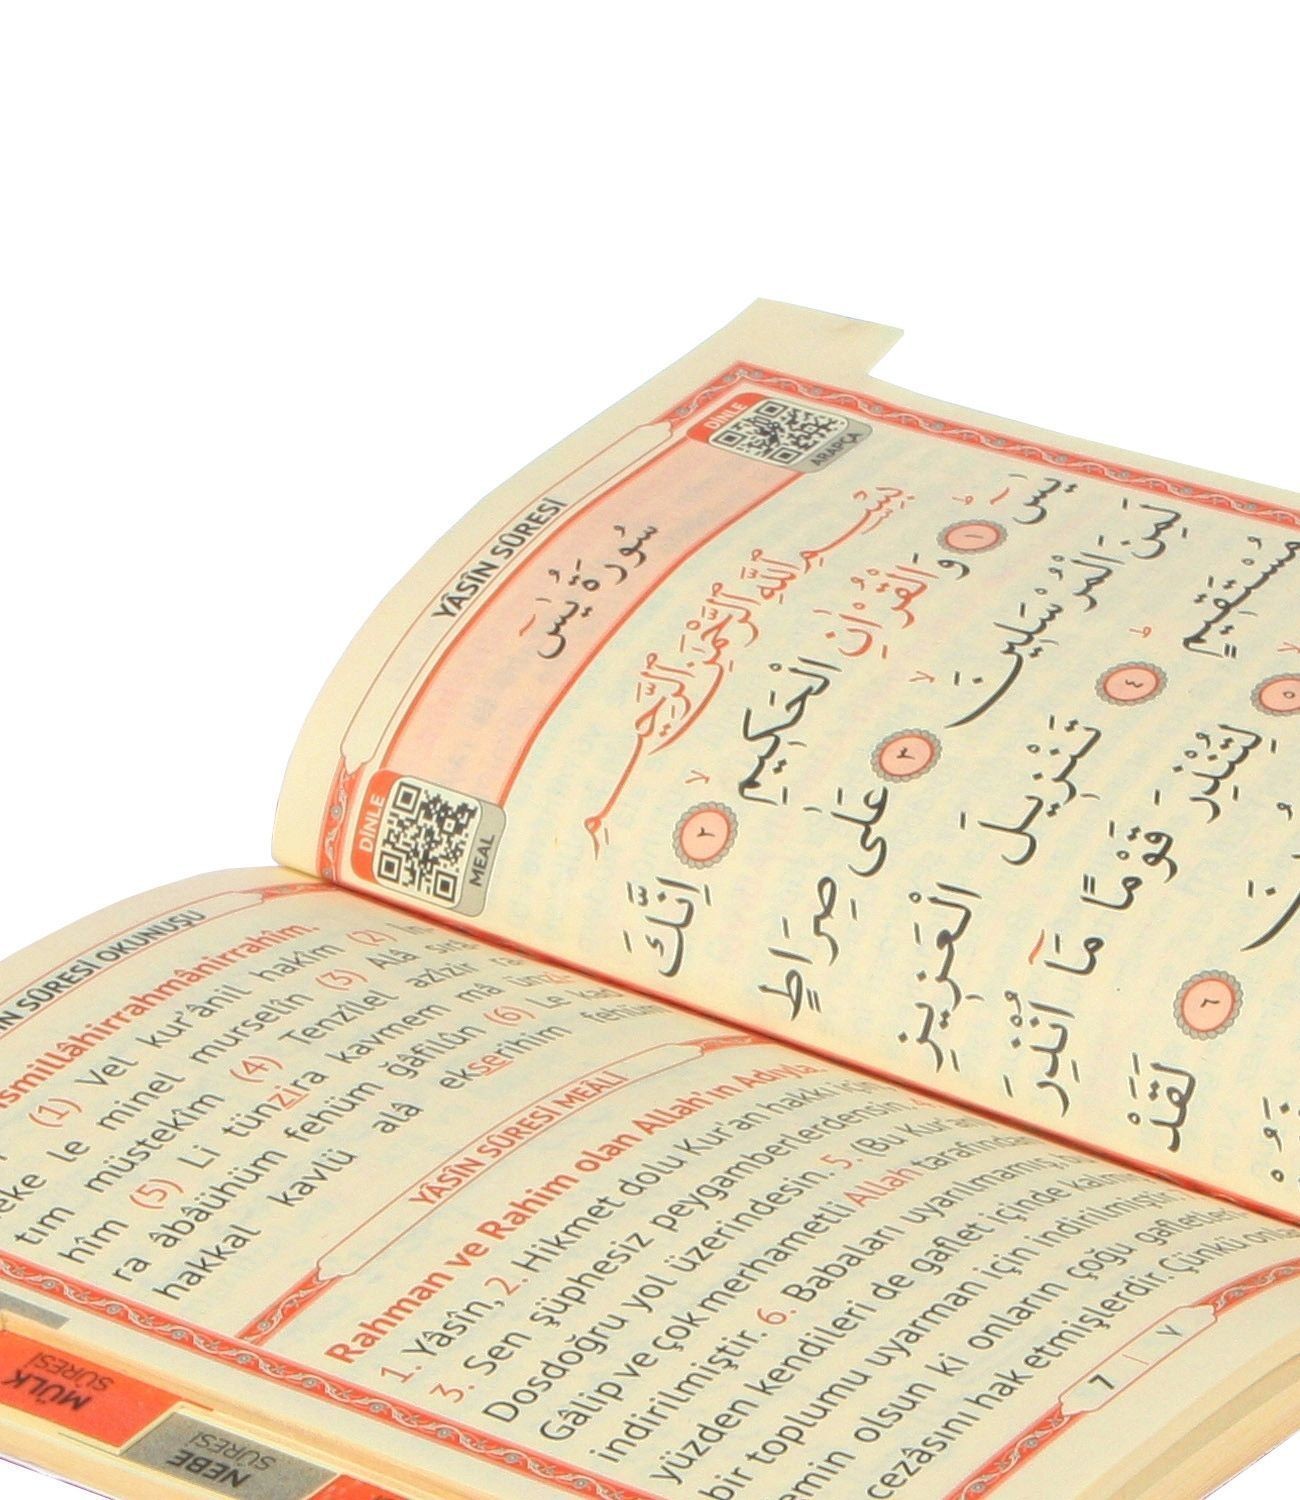 YÂSÎN SÛRESİ
DİNLE
ARAPÇA
سُورَةُ يٰسٓ
DİNLE
MEAL
بِسْمِ اللّٰهِ الرَّحْمٰنِ الرَّحِيمِ
يٰسٓ ۚ ١ وَالْقُرْاٰنِ الْحَكِيمِ ۙ ٢ اِنَّكَ
لَمِنَ الْمُرْسَلِينَ ۙ ٣ عَلٰى صِرَاطٍ
مُسْتَقِيمٍ ۜ ٤ تَنْزِيلَ الْعَزِيزِ
٥ لِتُنْذِرَ قَوْمًا مَٓا اُنْذِرَ
٦ لَقَدْ
SÛRESİ OKUNUŞU
(1) Vel kur'ânil hakîm (2) İn
le minel murselîn (3) Alâ sırâ
tım müstekîm (4) Tenzîlel azîzir ra
hîm (5) Li tünzira kavmem mâ ün
ra âbâühüm fehüm ğâfilûn (6) Le kad
hakkal kavlü alâ ekserihim fehüm
YÂSÎN SÛRESİ MEÂLİ
Rahman ve Rahim olan Allah'ın Adıyla.
1. Yâsîn, 2. Hikmet dolu Kur'an hakkı için
3. Sen şüphesiz peygamberlerdensin.
Dosdoğru yol üzerindesin. 5. (Bu Kur'an)
Gâlip ve çok merhametli Allah tarafından
indirilmiştir. 6. Babaları uyarılmamış,
yüzden kendileri de gaflet içinde
bir toplumu uyarman için indirilmiştir.
emin olsun ki onların çoğu gafletleri
cezâsını hak etmişlerdir. Çünkü
7 | ٧
MÜLK
SÛRESİ
NEBE
SÛRESİ